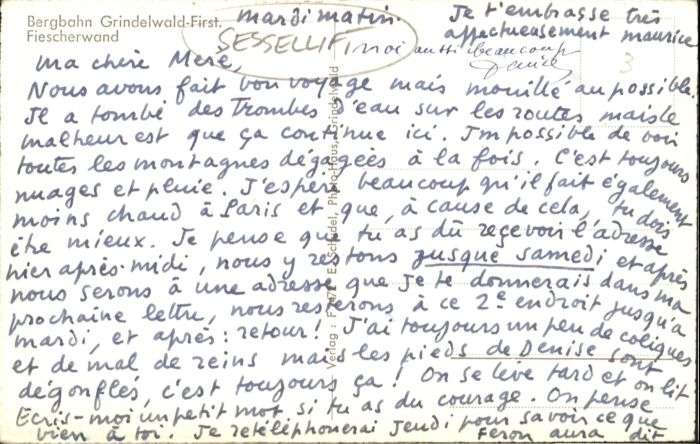 Bergbahn Grindelwald-First,
Fiescherwand
mardi matin.
SESSELLIFT,
Je t'embrasse très
affectueusement maurice
moi aussi beaucoup
Denise
3
ma chère Mère,
Nous avons fait bon voyage mais mouillé au possible.
Il a tombé des Trombes d'eau sur les routes mais le
malheur est que ça continue ici. Impossible de voir
toutes les montagnes dégagées à la fois. C'est toujours
nuages et pluie. J'espère beaucoup qu'il fait également
moins chaud à Paris et que, à cause de cela, tu dois
être mieux. Je pense que tu as dû recevoir l'adresse
hier après-midi, nous y restons jusque samedi et après
nous serons à une adresse que je te donnerais dans ma
prochaine lettre, nous resterons à ce 2e endroit jusqu'à
mardi, et après : retour! J'ai toujours un peu de coliques
et de mal de reins mais les pieds de Denise sont
dégonflés, c'est toujours ça! On se lève tard et on lit
Ecris-moi un petit mot si tu as du courage. On pense
bien à toi. Je retéléphonerai jeudi pour savoir ce que
aura dit
Verlag : E. Schudel, Photo-Haus, Grindelwald